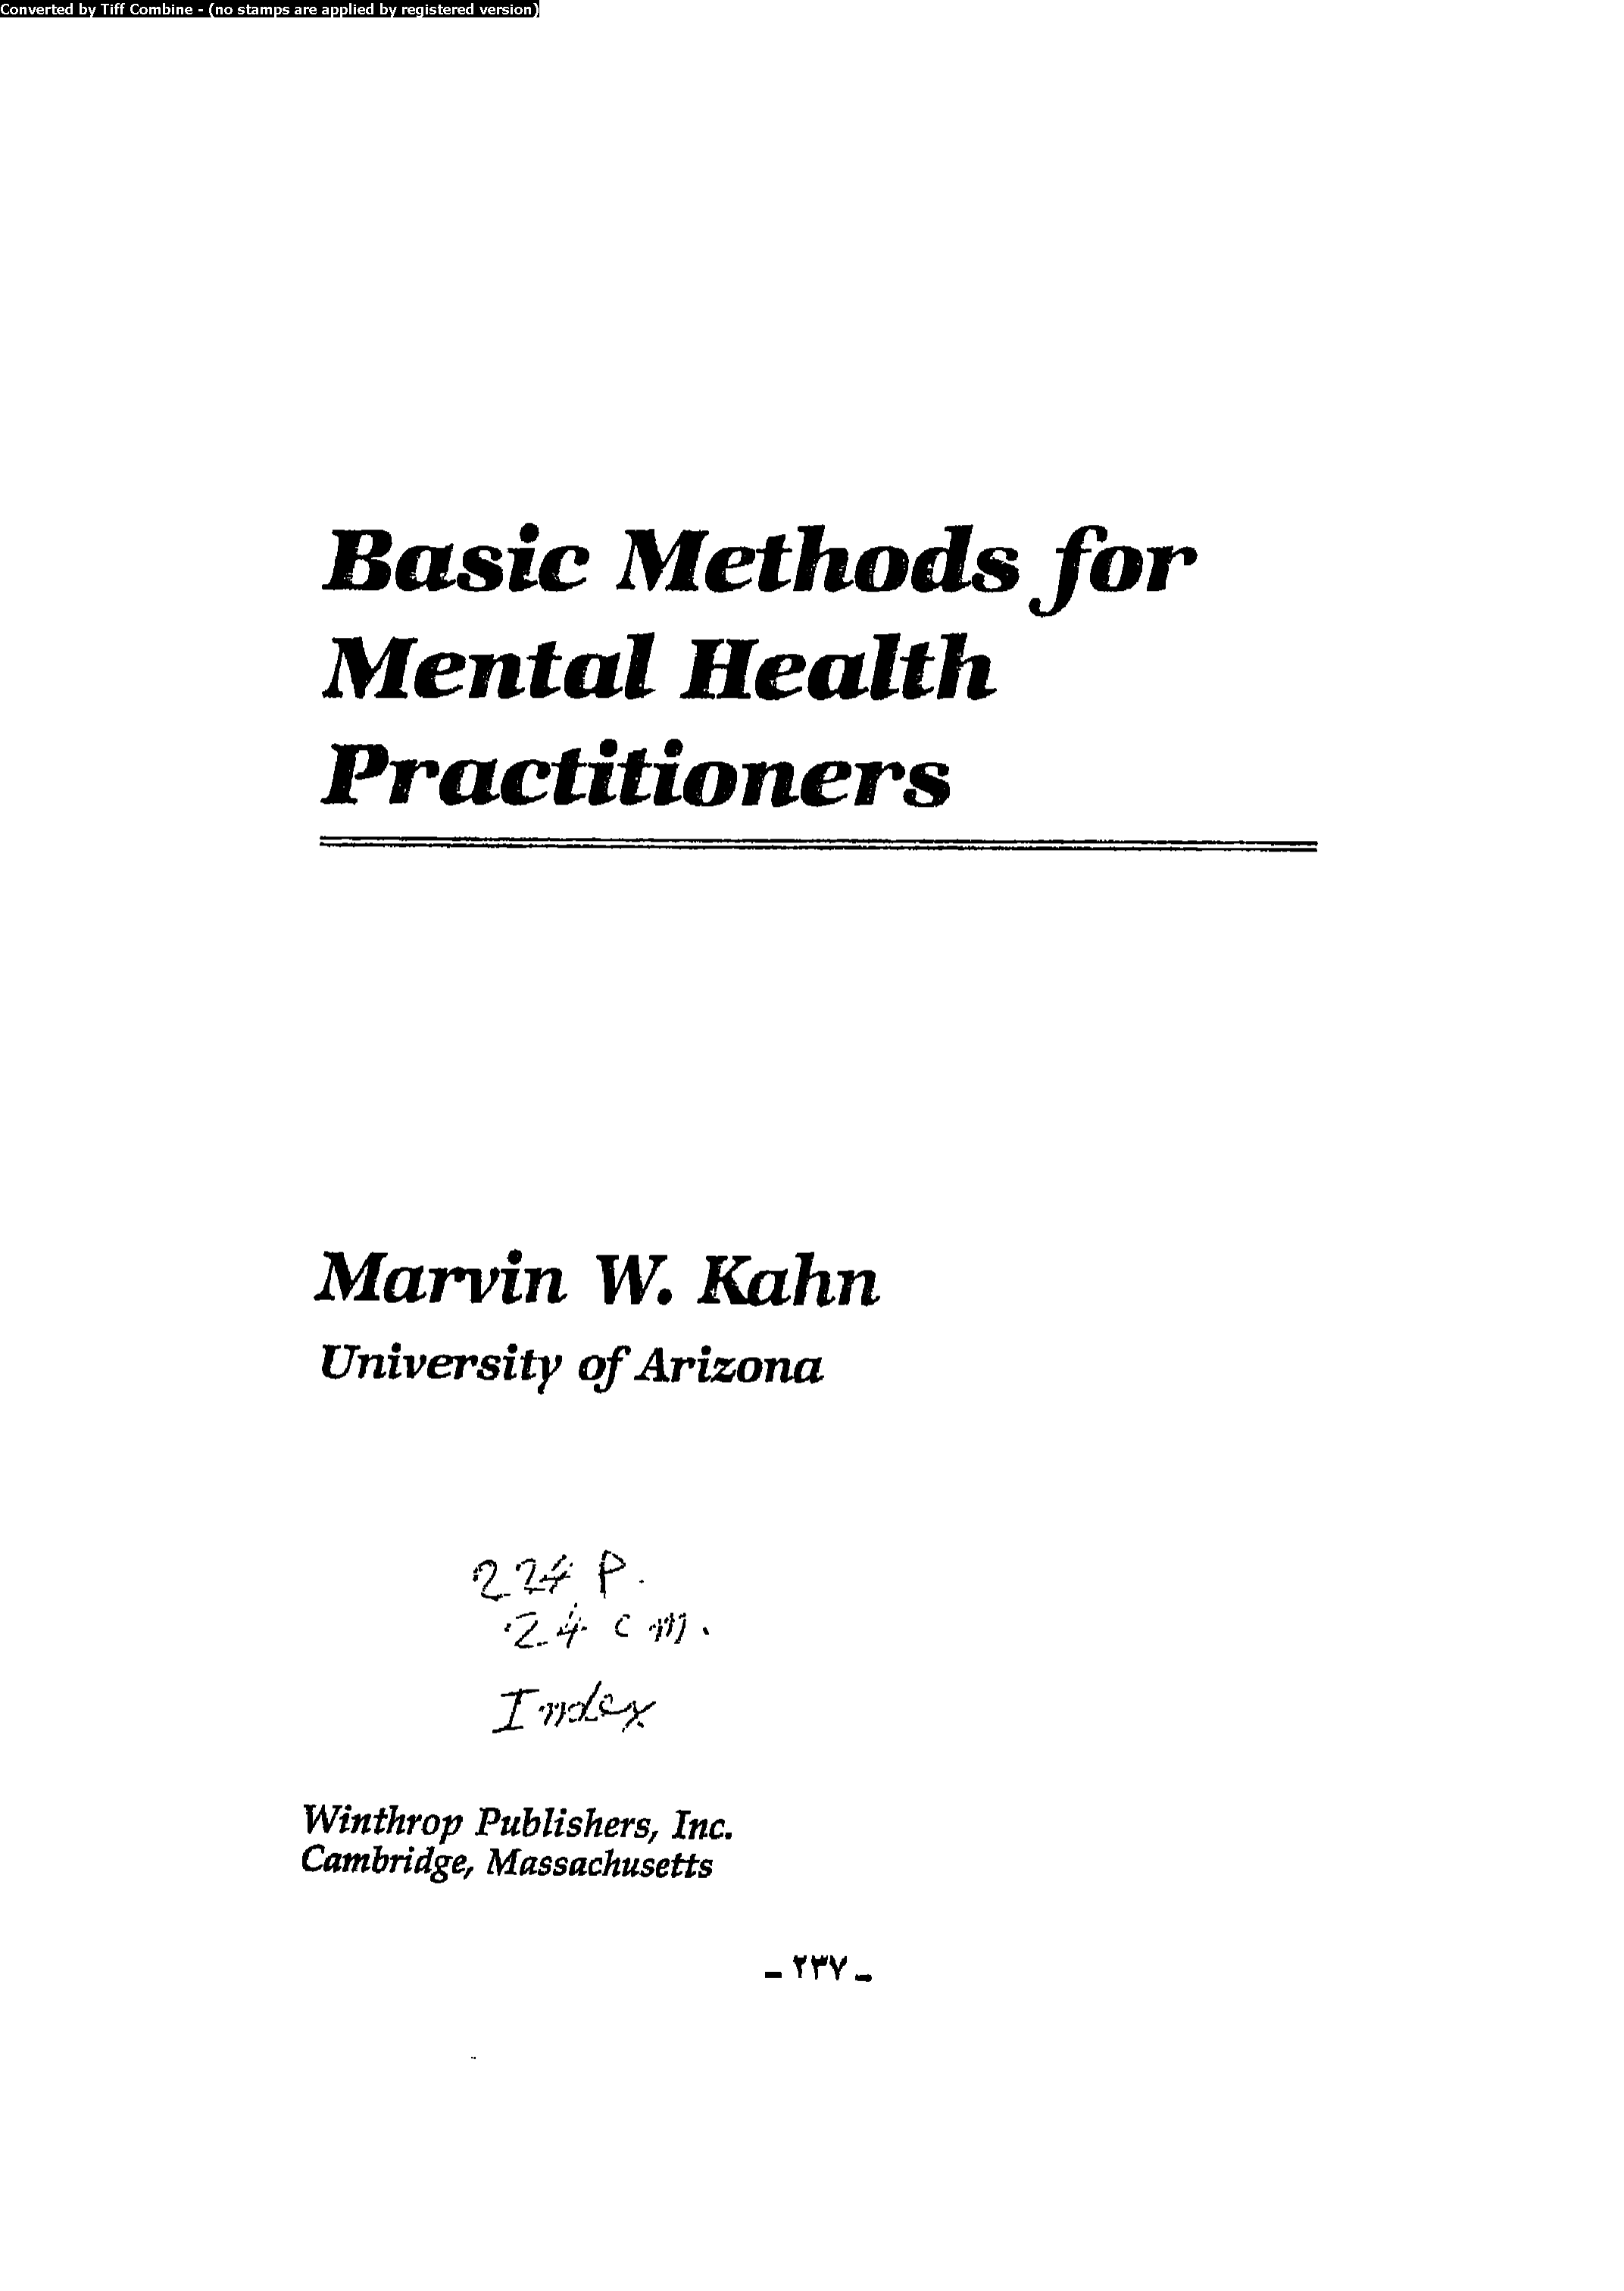 Converted by Tiff Combine - (no stamps are applied by registered version)
Basic Methods for
Mental Health
Practitioners
Marvin W. Kahn
University of Arizona
224 P.
24 cm.
Index
Winthrop Publishers, Inc.
Cambridge, Massachusetts
- ٢٣٧ -